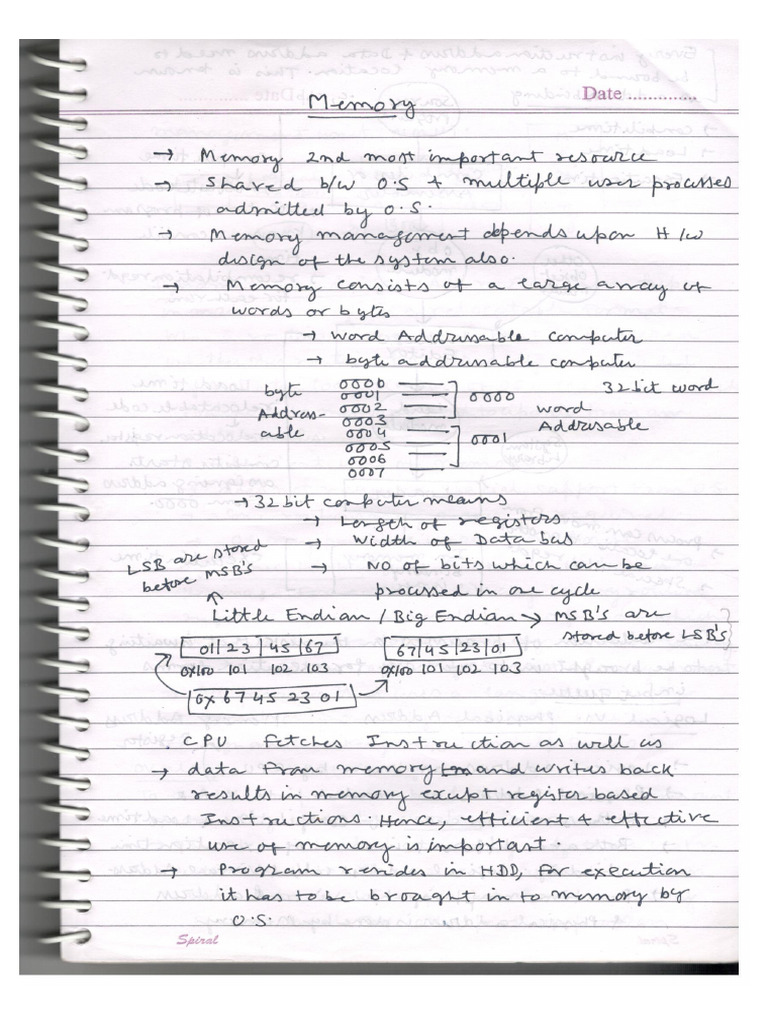 Date ..............
Memory
→ Memory 2nd most important resource
→ Shared b/w O.S + multiple user processes
admitted by O.S.
→ Memory management depends upon H/w
design of the system also.
→ Memory consists of a large array of
words or bytes
→ word Addressable computer
→ byte addressable computer
byte
Address-
able
0000
0001
0002
0003
0004
0005
0006
0007
0000
0001
word
Addressable
32 bit word
→ 32 bit computer means
→ Length of registers
→ Width of Data bus
→ NO of bits which can be
processed in one cycle
LSB are stored
before MSB's
↑
Little Endian / Big Endian → MSB's are
stored before LSB's
01|23|45|67
0x100 101 102 103
67|45|23|01
0x100 101 102 103
0x 67 45 23 01
. CPU fetches Instruction as well as
→ data from memory and writes back
results in memory except register based
Instructions. Hence, efficient & effective
use of memory is important.
→ Program resides in HDD, for execution
it has to be brought in to memory by
O.S.
Spiral